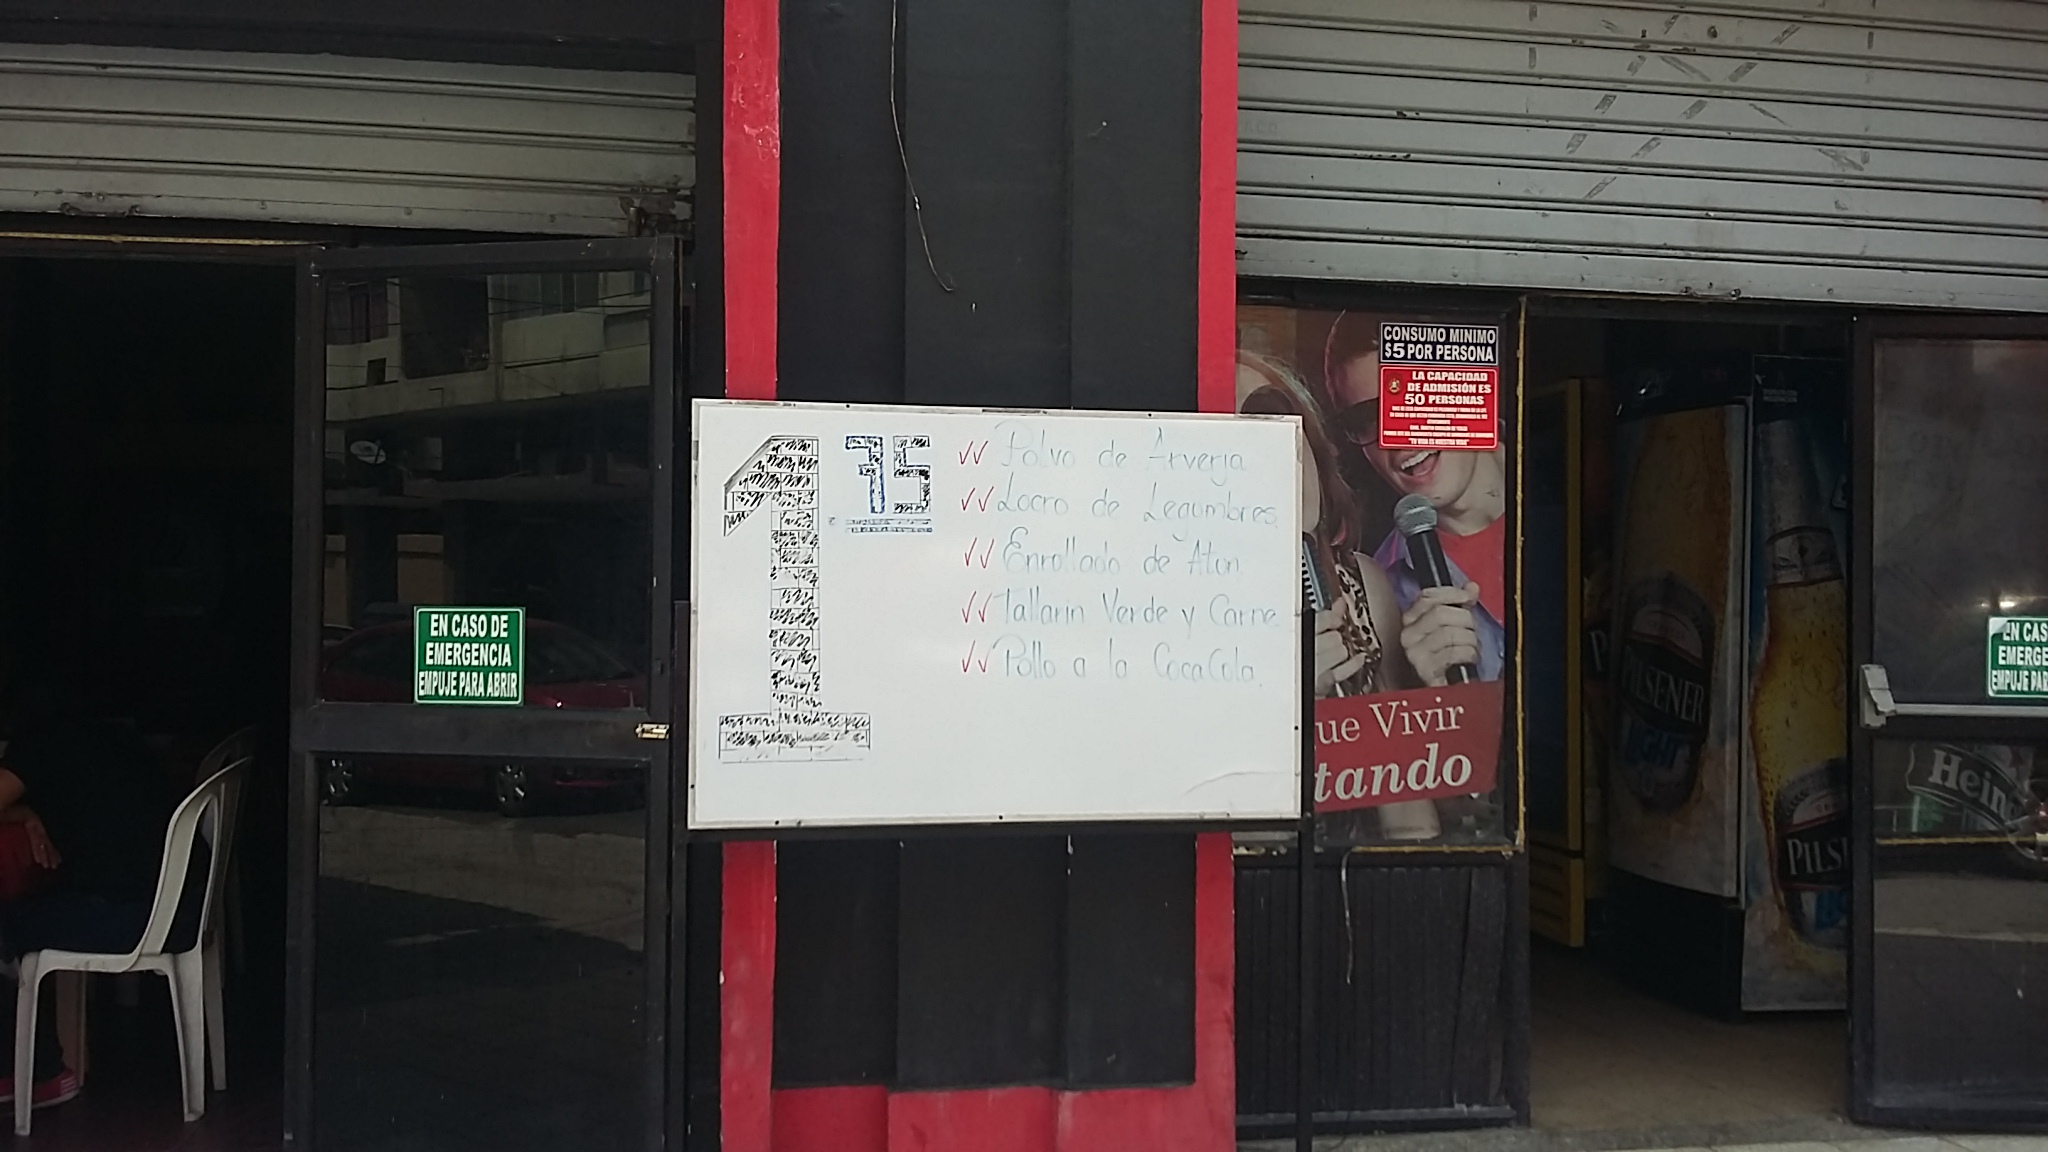 EN CASO DE
EMERGENCIA
EMPUJE PARA ABRIR
1.75
Polvo de Arverja
Locro de Legumbres.
Enrollado de Atun.
Tallarin Verde y Carne
Pollo a la CocaCola.
CONSUMO MINIMO
$5 POR PERSONA
LA CAPACIDAD
DE ADMISIÓN ES
50 PERSONAS
ue Vivir
tando
PILSENER
LIGHT
PILS
EN CAS
EMERGE
EMPUJE PAR
Hein